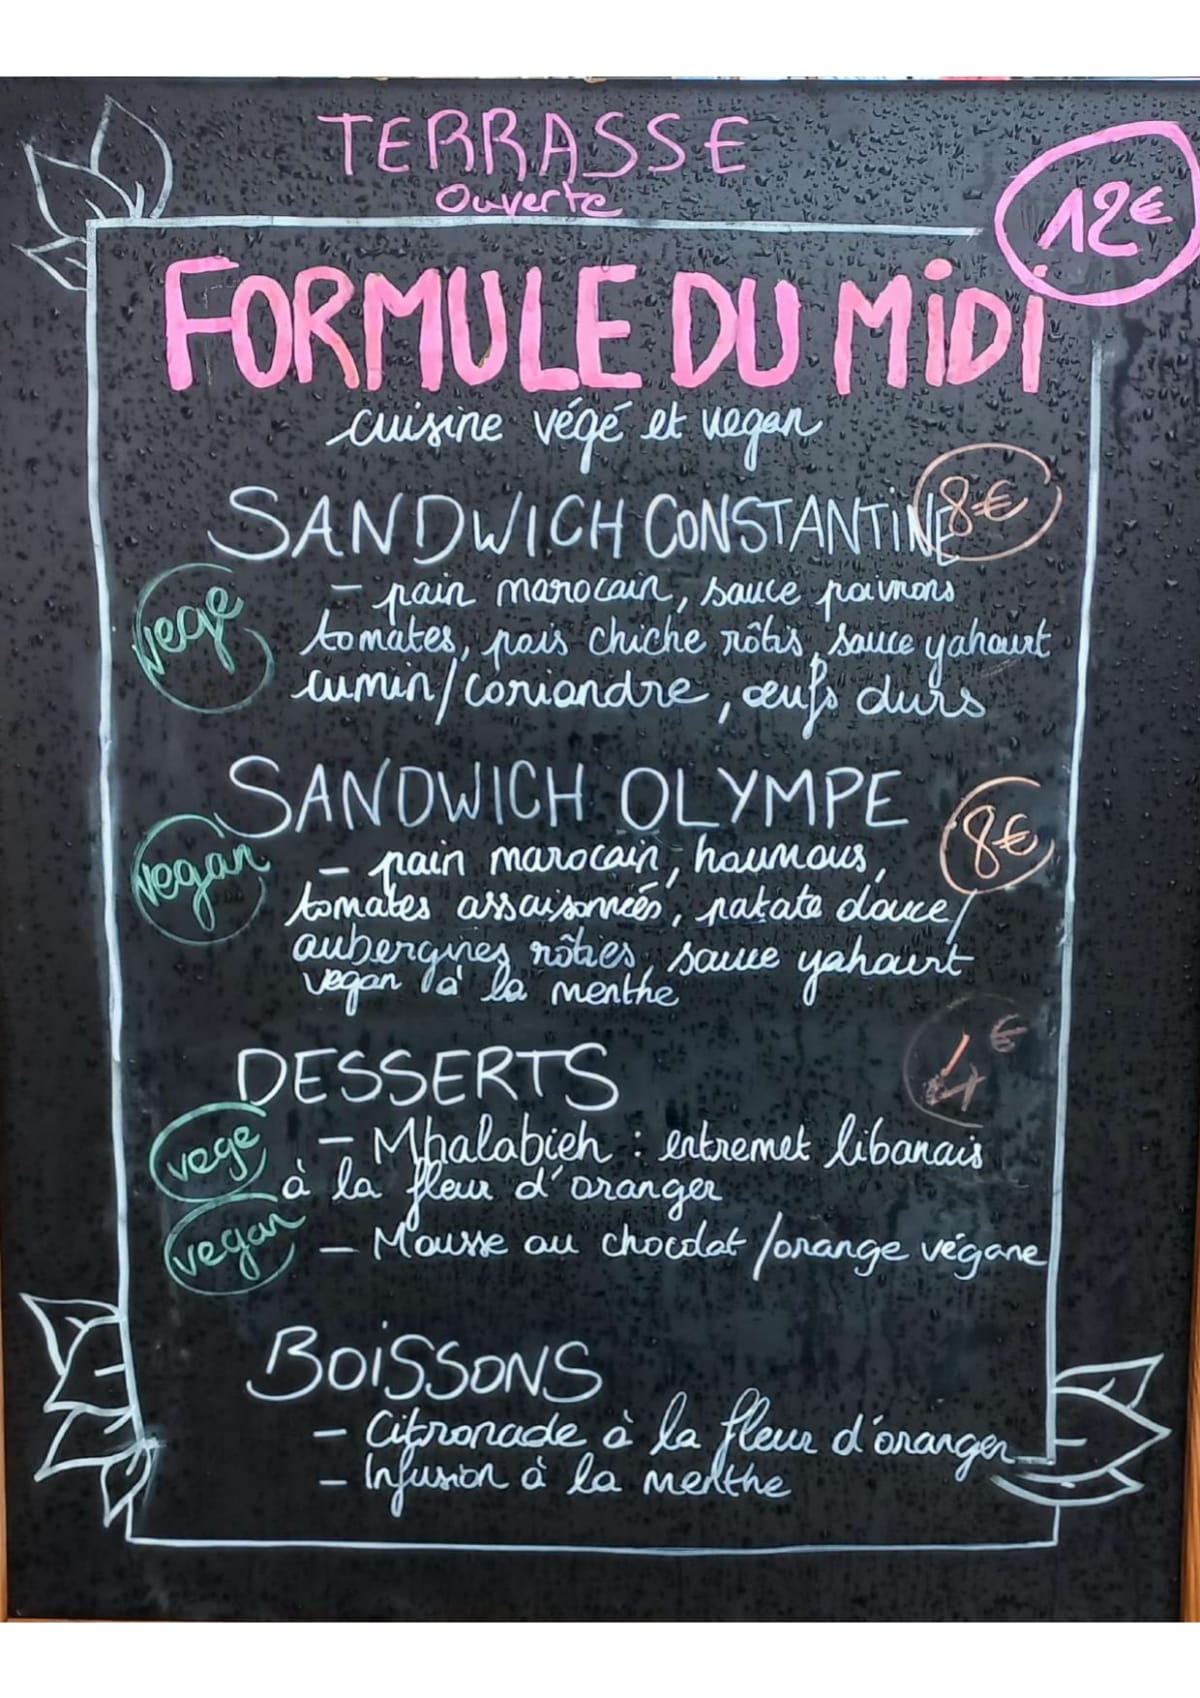 TERRASSE
ouverte
12€
FORMULE DU MiDi
cuisine végé et vegan
SANDWICH CONSTANTINE 8€
vege
- pain marocain, sauce poivrons
tomates, pois chiche rôtis, sauce yahourt
cumin/coriandre, œufs durs
SANDWICH OLYMPE 8€
vegan
- pain marocain, houmous,
tomates assaisonnées, patate douce/
aubergines rôties, sauce yahourt
vegan à la menthe
DESSERTS 4€
vege
- Mhalabieh : entremet libanais
à la fleur d'oranger
vegan
- Mousse au chocolat /orange végane
BOiSSONS
- Citronade à la fleur d'oranger
- Infusion à la menthe